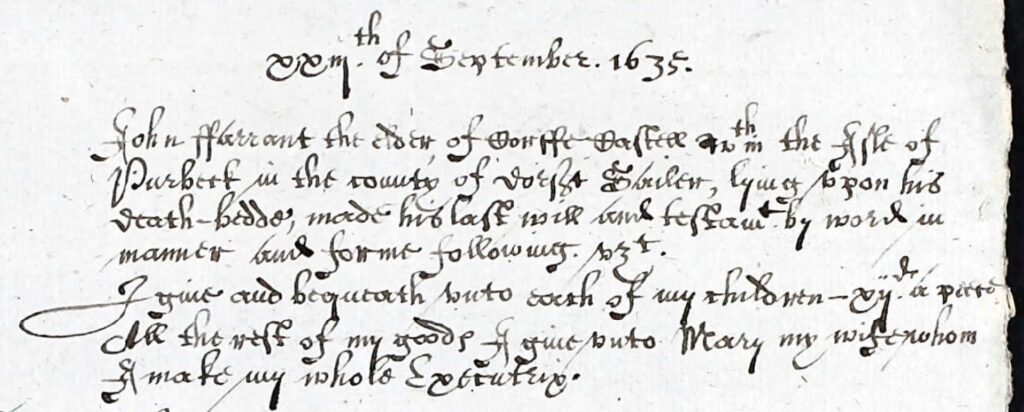 xxiij.th of September. 1635.
John ffarrant the elder of Corffe Castell wth in the Isle of
Purbeck in the county of Dorset Sailer, lying vpon his
death-bedde, made his last will and testamt. by word in
manner and forme following. vzt.
I giue and bequeath vnto each of my children - xijd. a peece
All the rest of my goods I giue vnto Mary my wife whom
I make my whole Executrix.